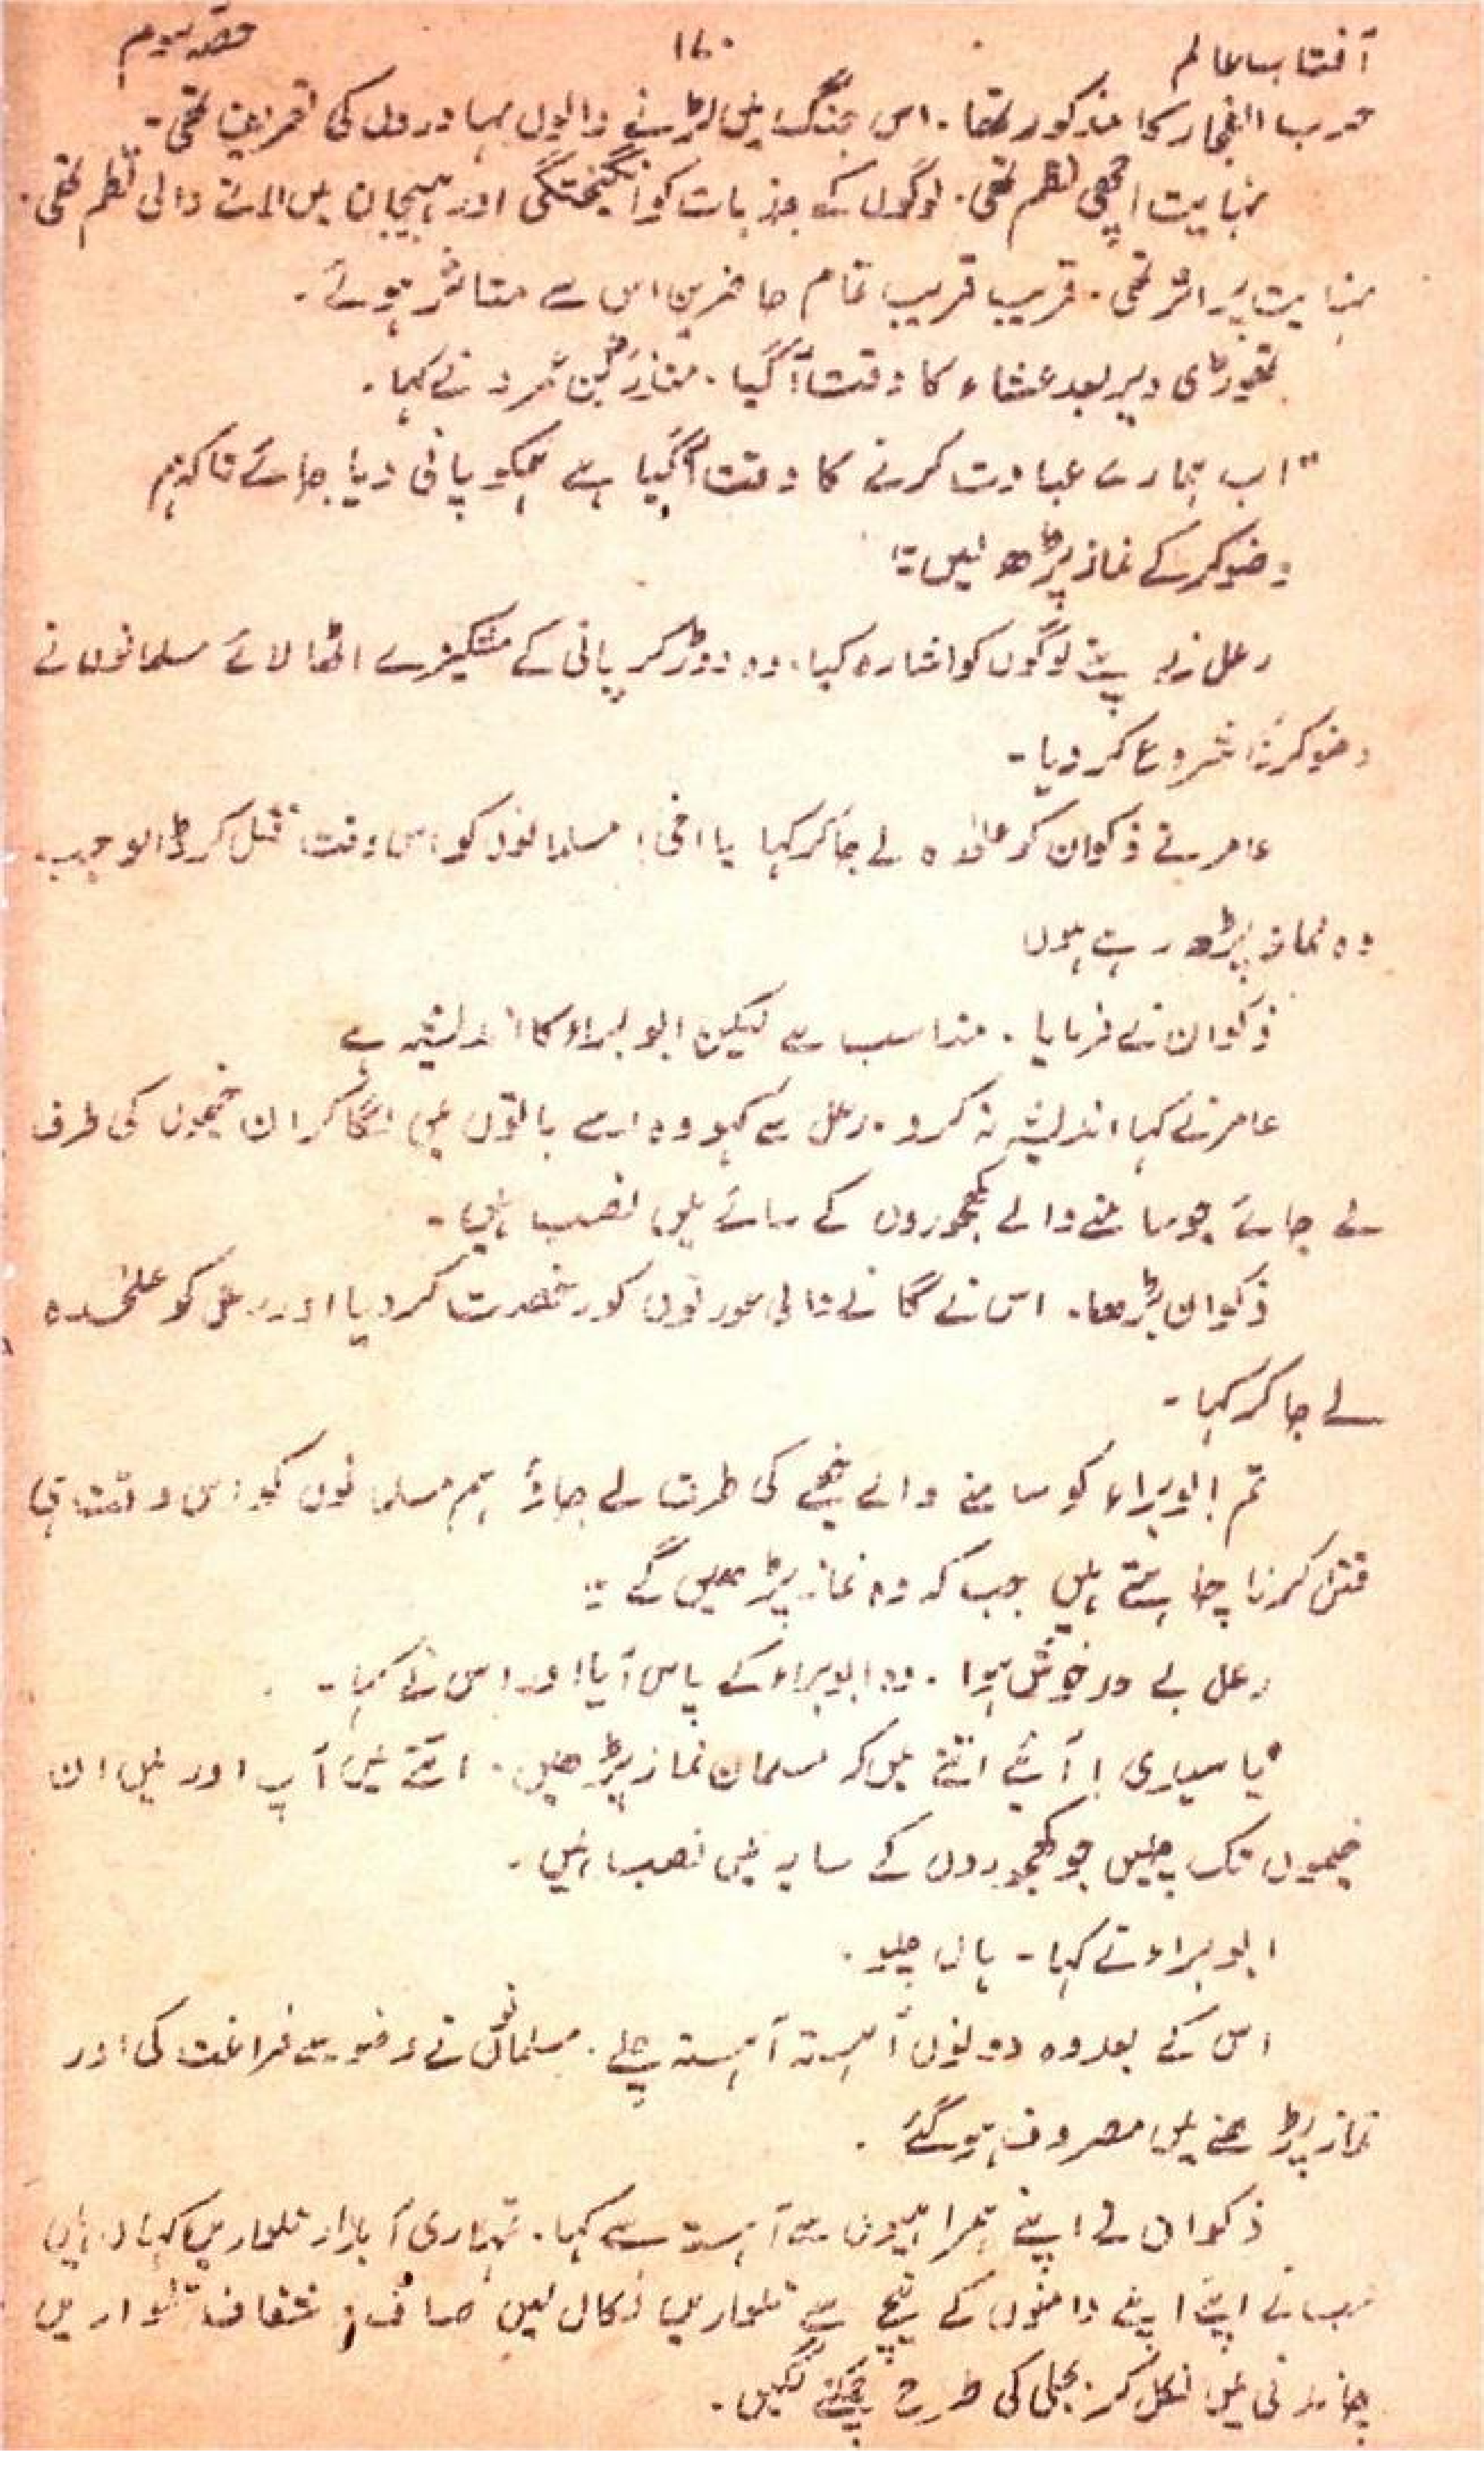 آفتاب عالم ۱۶۰ حصہ سوم
حرب الفجار کا مذکور تھا۔ اس جنگ میں لڑنے والوں بہادروں کی تعریف تھی۔
نہایت اچھی نظم تھی۔ لوگوں کے جذبات کو انگیختگی اور ہیجان میں لانے والی نظم تھی۔
نہایت پر اثر تھی۔ قریب قریب تمام حاضرین اس سے متاثر ہوئے۔
تھوڑی دیر بعد عشاء کا وقت آ گیا۔ منذر بن عمرو نے کہا۔
"اب ہمارے عبادت کرنے کا وقت آ گیا ہے ہمکو پانی دیا جائے تاکہ ہم
وضو کر کے نماز پڑھ لیں"۔
رعل نے اپنے لوگوں کو اشارہ کیا۔ وہ دوڑ کر پانی کے مشکیزے اٹھا لائے مسلمانوں نے
وضو کرنا شروع کر دیا۔
عامر نے ذکوان کو علیٰحدہ لے جا کر کہا یا اخی! مسلمانوں کو اس وقت قتل کر ڈالو جب
وہ نماز پڑھ رہے ہوں
ذکوان نے فرمایا۔ مناسب ہے لیکن ابو براء کا اندلیشہ ہے
عامر نے کہا اندلیشہ نہ کرو۔ رعل سے کہو وہ اسے باتوں میں لگا کر ان خیموں کی طرف
لے جائے جو سامنے والے کھجوروں کے سائے میں نصب ہیں۔
ذکوان بڑھا۔ اس نے گانے والی عورتوں کو رخصت کر دیا اور رعل کو علیٰحدہ
لے جا کر کہا۔
تم ابو براء کو سامنے والے خیمے کی طرف لے جاؤ ہم مسلمانوں کو اس وقت ہی
قتل کرنا چاہتے ہیں جب کہ وہ نماز پڑھیں گے"۔
رعل بے حد خوش ہوا۔ وہ ابو براء کے پاس آیا اور اس نے کہا۔
"یا سیدی! آئیے اتنے میں کہ مسلمان نماز پڑھیں۔ اتنے میں آپ اور میں ان
خیموں تک چلیں جو کھجوروں کے سایہ میں نصب ہیں۔
ابو براء نے کہا۔ ہاں چلو۔
اس کے بعد وہ دونوں آہستہ آہستہ چلے۔ مسلمانوں نے وضو سے فراغت کی اور
نماز پڑھنے میں مصروف ہو گئے۔
ذکوان نے اپنے ہمراہیوں سے آہستہ سے کہا۔ تمہاری آبدار تلواریں کہاں ہیں
سب نے اپنے اپنے دامنوں کے نیچے سے تلواریں نکال لیں صاف و شفاف تلواریں
چاندنی میں نکل کر بجلی کی طرح چمکنے لگیں۔